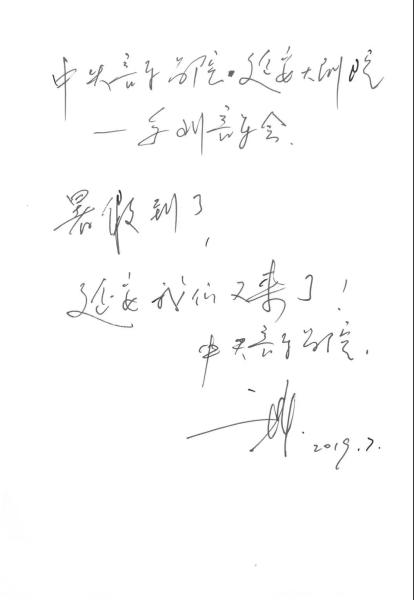 中央音乐学院·延安大剧院
一系列音乐会.
暑假到了,
延安我们又来了!
中央音乐学院.
2019.7.